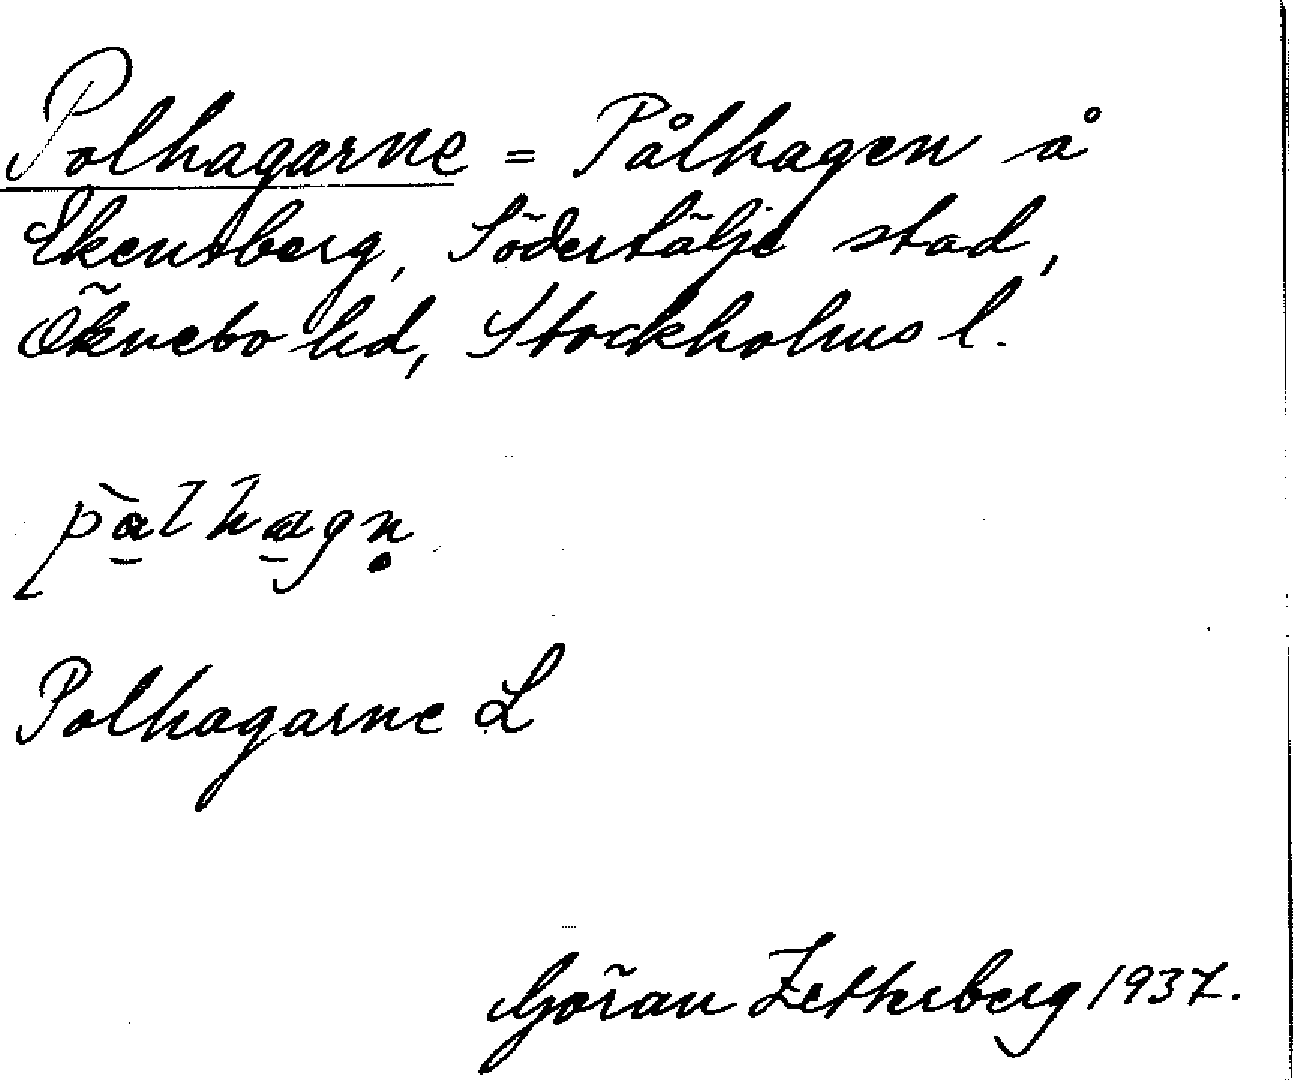 Polhagarne = Pålhagen å
Ekensberg, Södertälje stad,
Öknebo hd, Stockholms l.
Polhagarne L
Göran Zetterberg 1937.